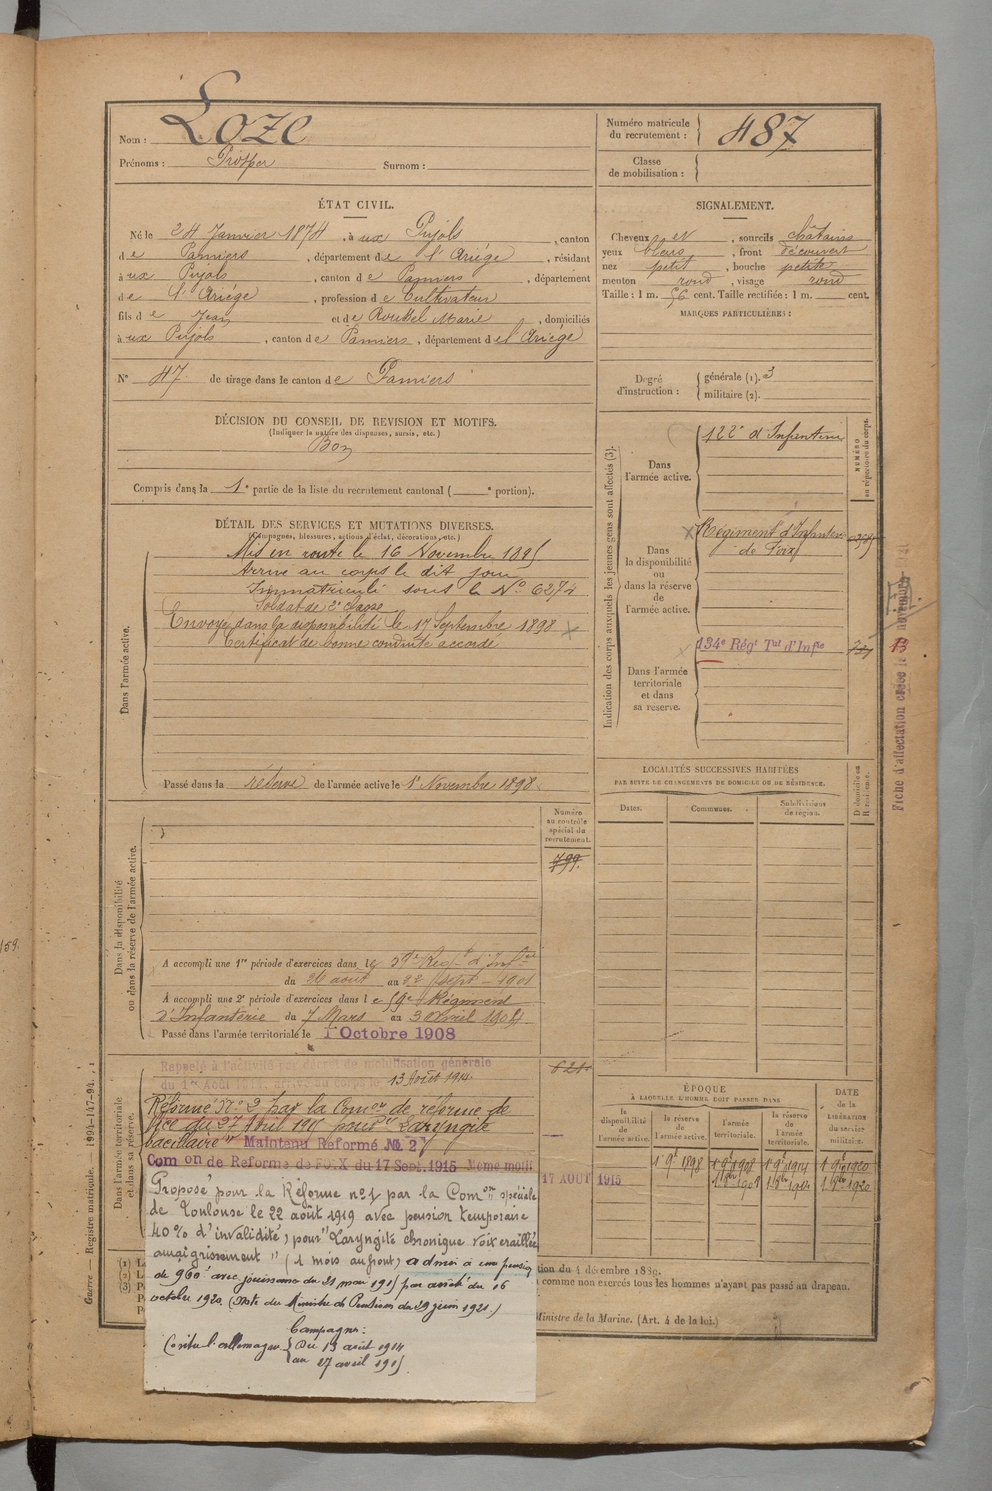 Nom : Loze
Prénoms : Prosper Surnom :
Numéro matricule du recrutement : 487
Classe de mobilisation :
ÉTAT CIVIL.
Né le 24 Janvier 1874, à ux Pujols, canton
de Pamiers, département de l'Ariége, résidant
à ux Pujols, canton de Pamiers, département
de l'Ariége, profession de Cultivateur
fils de Jean et de Roussel Marie, domiciliés
à ux Pujols, canton de Pamiers, département de l'Ariége
N° 47 de tirage dans le canton de Pamiers
DÉCISION DU CONSEIL DE REVISION ET MOTIFS.
(Indiquer la nature des dispenses, sursis, etc.)
Bon
Compris dans la 1e partie de la liste du recrutement cantonal ( e portion).
SIGNALEMENT.
Cheveux et, sourcils châtains
yeux bleus, front découvert
nez petit, bouche petite
menton rond, visage rond
Taille : 1 m. 56 cent. Taille rectifiée : 1 m. cent.
MARQUES PARTICULIÈRES :
Degré d'instruction : générale (1). 3
militaire (2).
DÉTAIL DES SERVICES ET MUTATIONS DIVERSES.
(Campagnes, blessures, actions d'éclat, décorations, etc.)
Dans l'armée active.
Mis en route le 16 Novembre 1895
Arrivé au corps le dit jour
Immatriculé sous le N° 6274
Soldat de 2e classe
Envoyé dans la disponibilité le 17 Septembre 1898
Certificat de bonne conduite accordé
Passé dans la réserve de l'armée active le 1er Novembre 1898
Indication des corps auxquels les jeunes gens sont affectés (3).
NUMÉRO au répertoire du corps.
Dans l'armée active.
122e d'Infanterie
Dans la disponibilité ou dans la réserve de l'armée active.
Régiment d'Infanterie
de Foix
Dans l'armée territoriale et dans sa réserve.
134e Régt Tal d'Infie
Fiche d'affectation créée le 13 novembre
LOCALITÉS SUCCESSIVES HABITÉES
PAR SUITE DE CHANGEMENTS DE DOMICILE OU DE RÉSIDENCE.
Dates. Communes. Subdivisions de région. D domicile ou R résidence.
Dans la disponibilité ou dans la réserve de l'armée active.
Numéro au contrôle spécial du recrutement.
799
A accompli une 1re période d'exercices dans le 59e Régt d'Infie
du 26 août au 22 sept 1901
A accompli une 2e période d'exercices dans le 59e Régiment
d'Infanterie du 7 Mars au 3 Avril 1904
Passé dans l'armée territoriale le 1 Octobre 1908
Dans l'armée territoriale et dans sa réserve.
Rappelé à l'activité par décret de mobilisation générale
du 1er Août 1914, arrivé au corps le 13 Août 1914.
621
Réformé N° 2 par la Comon de réforme de
Nice du 27 Avril 1915 pour "Laryngite
bacillaire" Maintenu Réformé No 2
Com on de Reforme de FOIX du 17 Sept. 1915 Meme motif
17 AOUT 1915
Proposé pour la Réforme n°1 par la Comon spéciale
de Toulouse le 22 août 1919 avec pension temporaire
40% d'invalidité, pour "Laryngite chronique voix éraillée
amaigrissement" (1 mois au front) admis à une pension
de 960f avec jouissance du 21 mai 1915 par arrêté du 16
octobre 1920. (Note du Ministre des Pensions du 29 juin 1921.)
Campagne :
Contre l'allemagne Du 13 août 1914
au 27 avril 1915
ÉPOQUE
À LAQUELLE L'HOMME DOIT PASSER DANS
la disponibilité de l'armée active. la réserve de l'armée active. l'armée territoriale. la réserve de l'armée territoriale.
DATE de la LIBÉRATION du service militaire.
1 9e 1898 1 9e 1908 1 9e 1914 1 9e 1920
tion du 4 décembre 1889.
comme non exercés tous les hommes n'ayant pas passé au drapeau.
Ministre de la Marine. (Art. 4 de la loi.)
Guerre — Registre matricule. — 1994-147-94.
159.